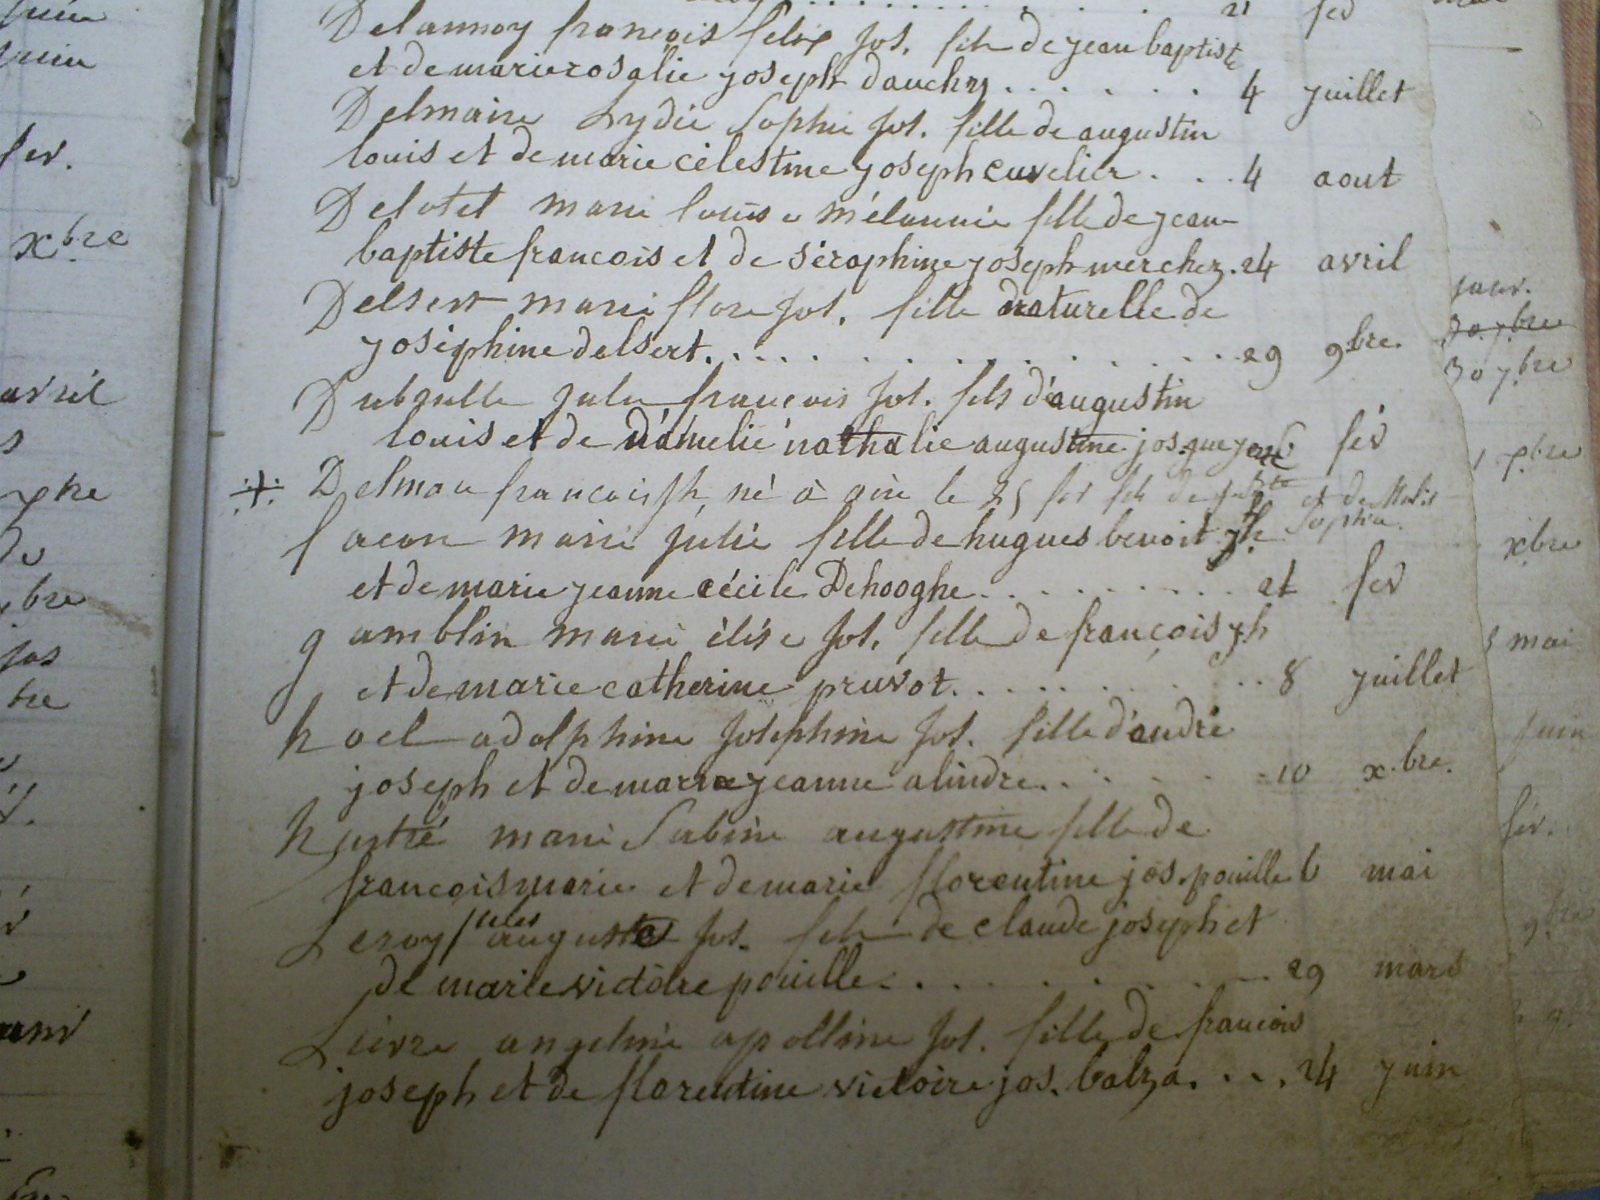 21 fev
Delannoy françois felix jos. fils de jean baptiste
et de marie rosalie joseph dauchy . . . . . . 4 juillet
Delmaire Lydie Sophie jos. fille de augustin
louis et de marie célestine joseph cuvelier . . . 4 aout
Delotel marie louise mélannie fille de jean
baptiste francois et de séraphine joseph mercher . 24 avril
Delsert marie flore jos. fille naturelle de
joséphine delsert . . . . . . . . . . . . . . 29 9bre.
Dubrulle jules françois jos. fils d'augustin
louis et de d'amelie nathalie augustine jos. 6 fév
Delmau francois jh, né à aire le 25 fev fils de et de
Sophie.
facon marie julie fille de hugues benoit jh
et de marie jeanne cécile Dehooghe . . . . . . . . . 21 fev
gamblin marie élise jos. fille de françois jh
et de marie catherine pruvot . . . . . . . . . 8 juillet
hoel adolphine josephine jos. fille d'andré
joseph et de marie jeanne alindre . . . . . 10 xbre.
marie Sabine augustine fille de
francois marie et de marie florentine jos. pouille 6 mai
Leroy jules auguste jos. fils de claude joseph et
de marie victoire pouille . . . . . . . . . . 29 mars
Lievre angeline apolline jos. fille de francois
joseph et de florentine victoire jos. balza . . . . 24 juin
juin
fev.
xbre
avril
s
bre
jos
bre
janv.
30 7bre
30 7bre
xbre
mai
juin
fév.
9bre